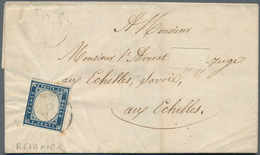 A Monsieur
Monsieur l'Avocat Juge
aux Echelles, Savoie,
aux Echelles.
REIGNIER